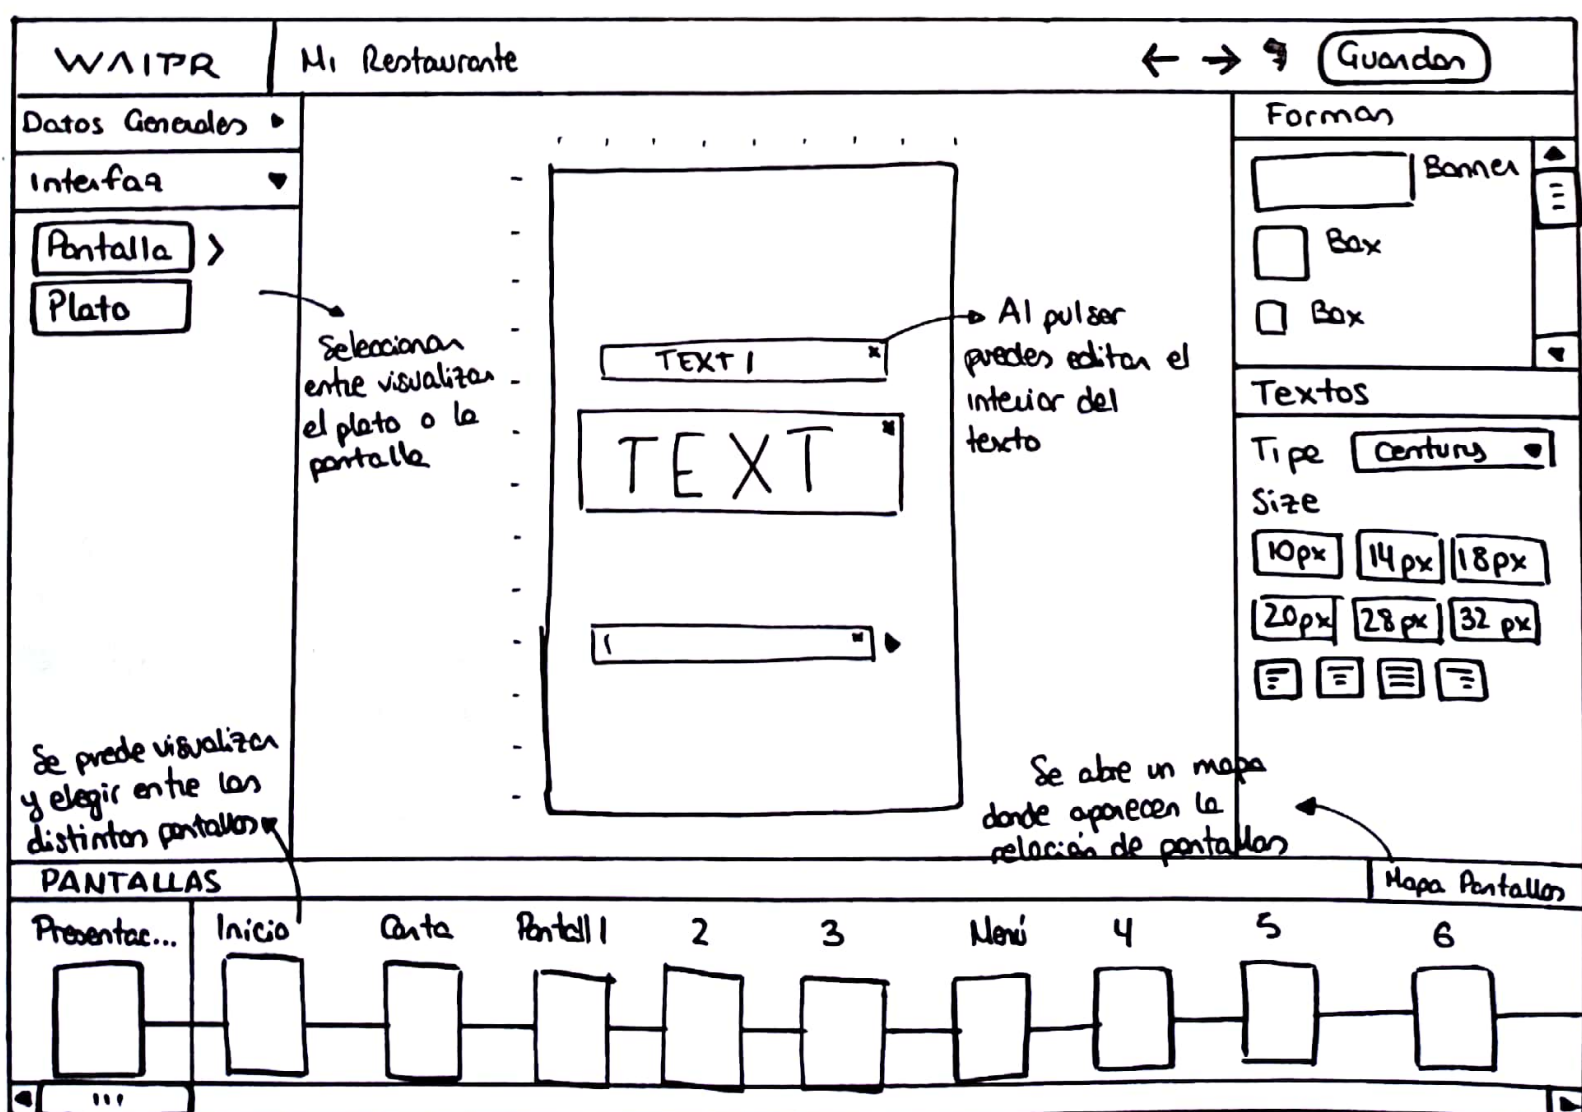 WAITR
Mi Restaurante
Guardar
Datos Generales
Interfaz
Pantalla
Plato
Seleccionar
entre visualizar
el plato o la
pantalla
TEXT 1
TEXT
Al pulsar
puedes editar el
interior del
texto
Formas
Banner
Box
Box
Textos
Tipe
Century
Size
10px
14px
18px
20px
28px
32 px
Se puede visualizar
y elegir entre las
distintas pantallas
Se abre un mapa
donde aparecen la
relación de pantallas
PANTALLAS
Mapa Pantallas
Presentac...
Inicio
Carta
Pantall 1
2
3
Menú
4
5
6